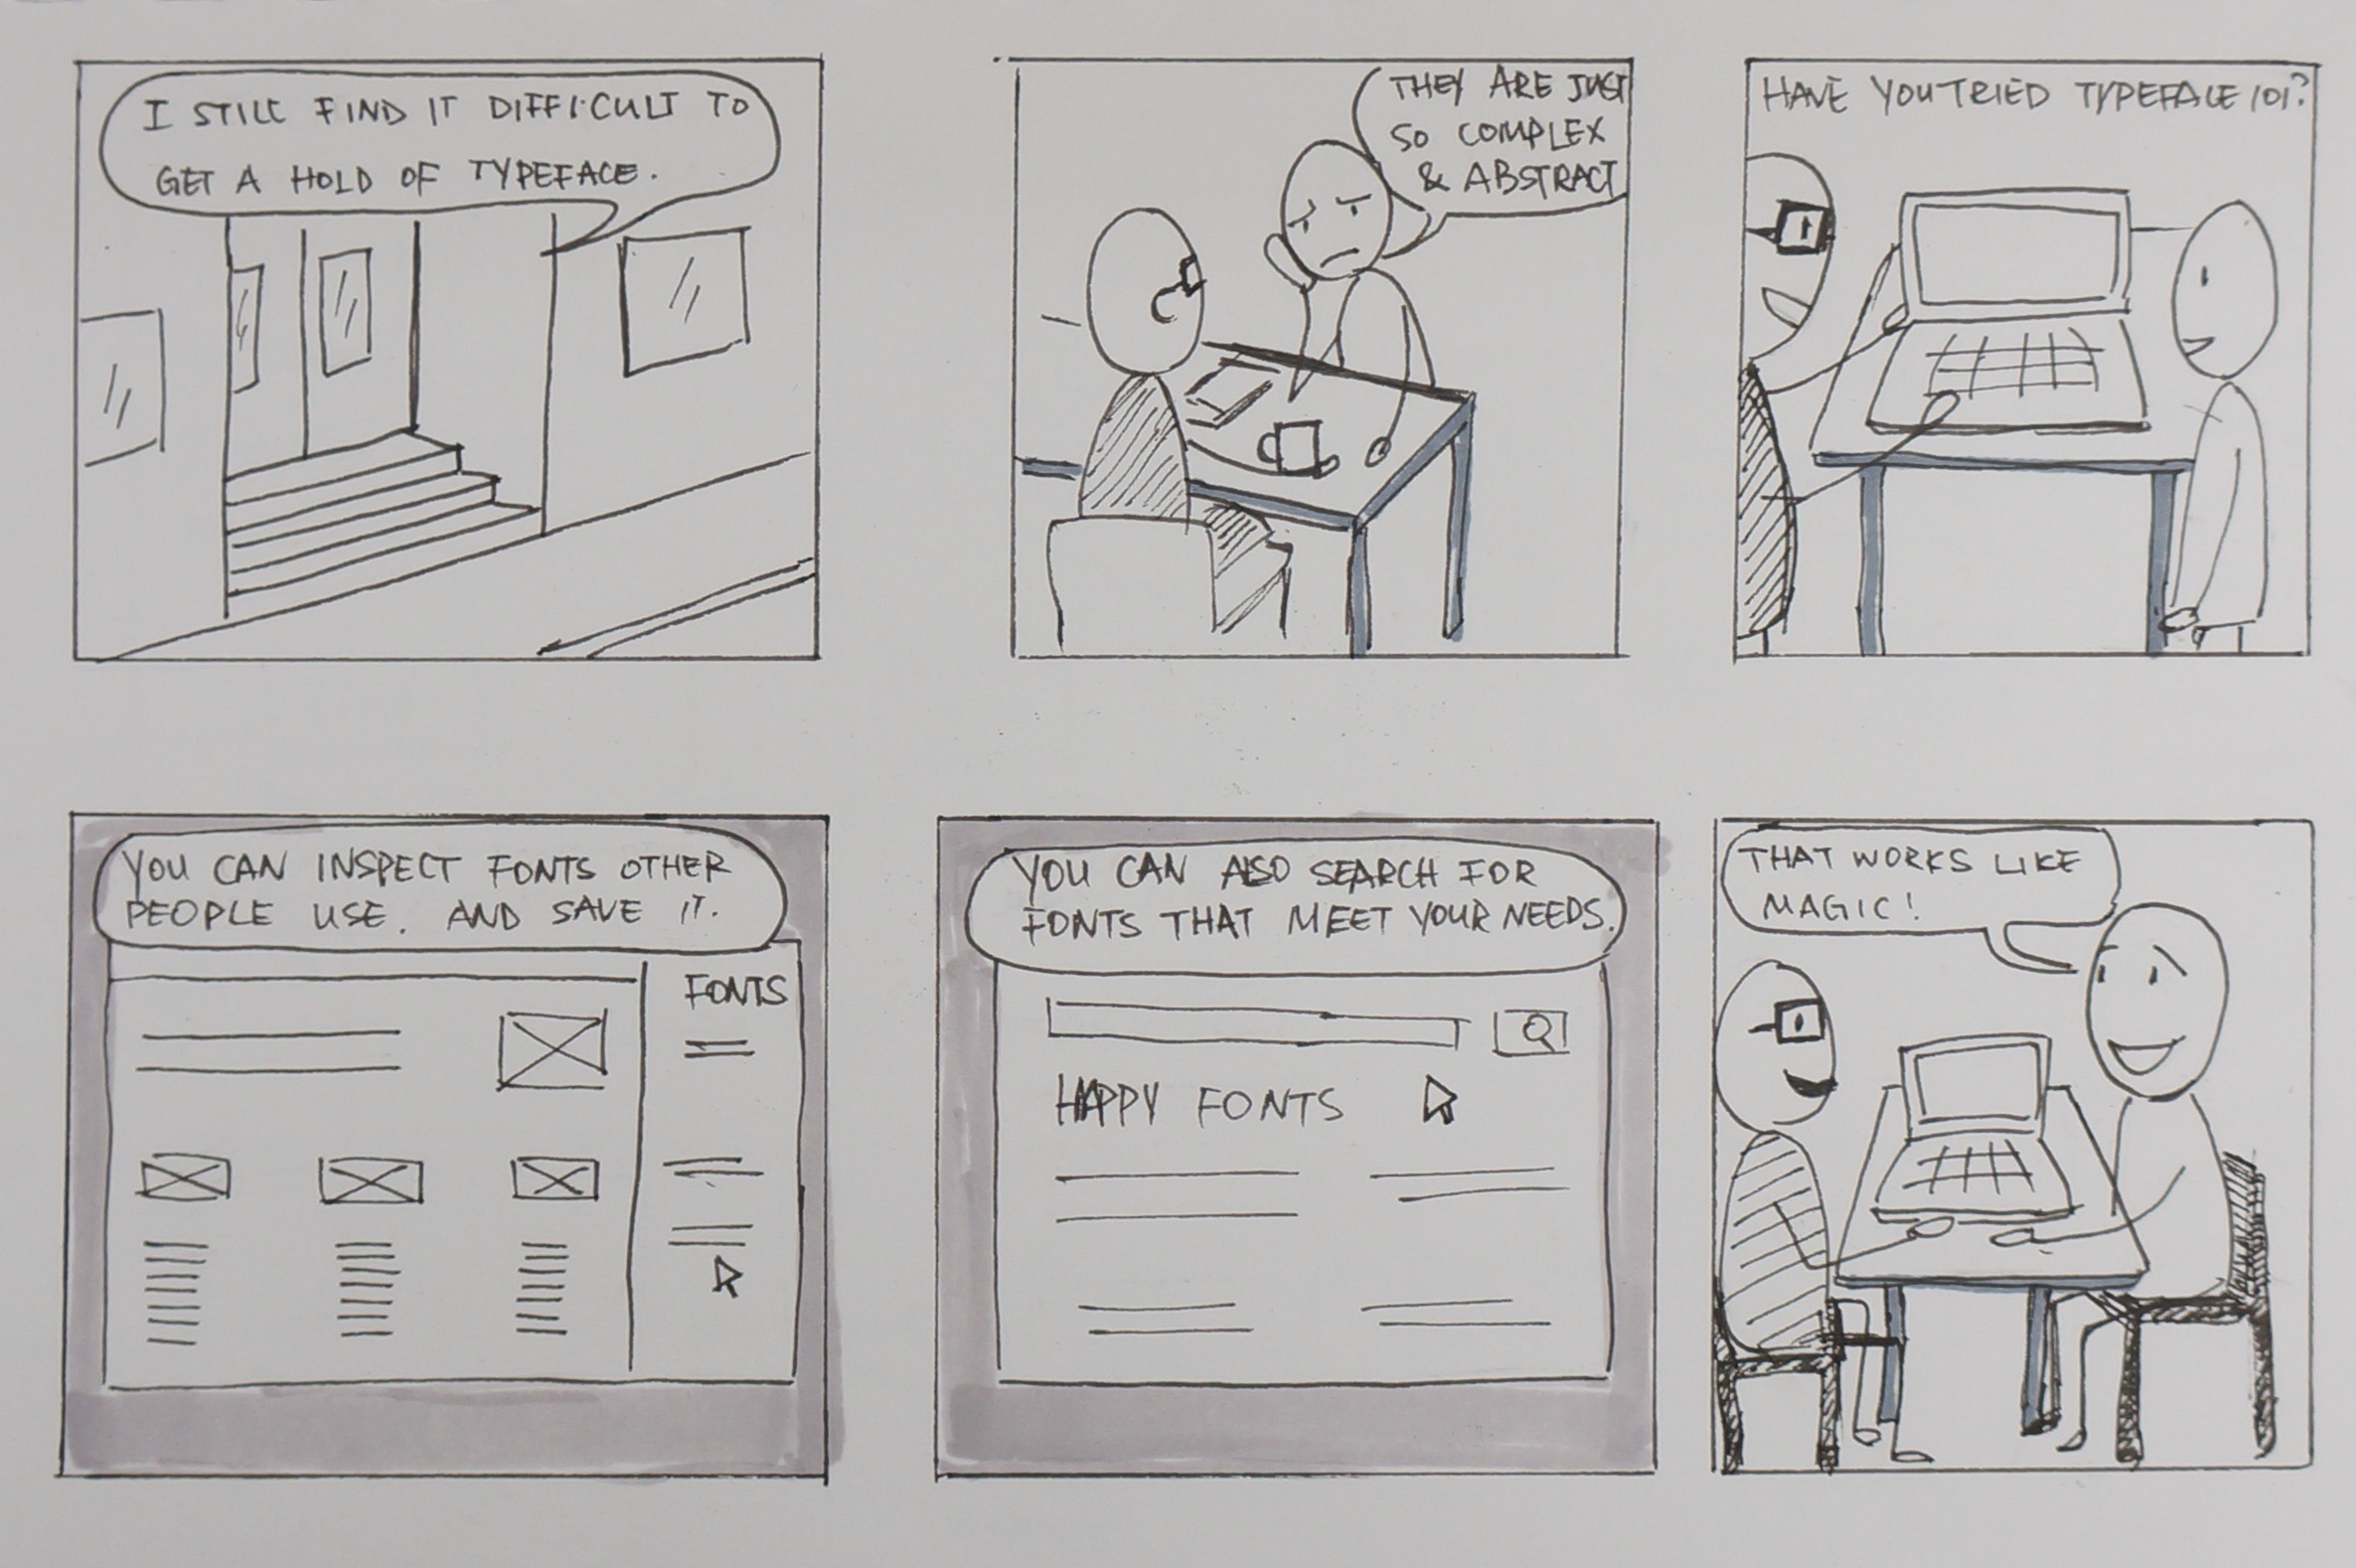 I STILL FIND IT DIFFICULT TO
GET A HOLD OF TYPEFACE.
THEY ARE JUST
SO COMPLEX
& ABSTRACT
HAVE YOU TRIED TYPEFACE 101?
YOU CAN INSPECT FONTS OTHER
PEOPLE USE. AND SAVE IT.
FONTS
YOU CAN ALSO SEARCH FOR
FONTS THAT MEET YOUR NEEDS.
HAPPY FONTS
THAT WORKS LIKE
MAGIC!